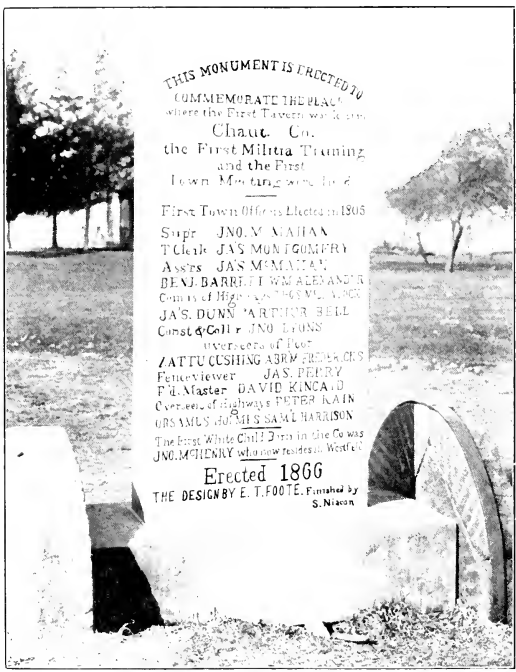 THIS MONUMENT IS ERECTED TO
COMMEMORATE THE PLACE
where the First Tavern was
Chaut. Co.
the First Militia Training
and the First
Town Meeting were held
First Town Officers Elected in 1808
Sup'r JNO. McMAHAN
T Clerk JA'S MONTGOMERY
Ass'rs JA'S McMAHAN
BENJ. BARRETT WM ALEXANDER
Com'rs of Highways
JA'S. DUNN ARTHUR BELL
Const & Coll'r JNO. LYONS
Overseers of Poor
ZATTU CUSHING ABRM FREDERICKS
Fenceviewer JAS. PERRY
P'd. Master DAVID KINCAID
Overseers of Highways PETER KAIN
ORSAMUS HOLMES SAM'L HARRISON
The First White Child Born in the Co was
JNO. McHENRY who now resides in Westfield
Erected 1866
THE DESIGN BY E. T. FOOTE. Finished by
S. Nixson